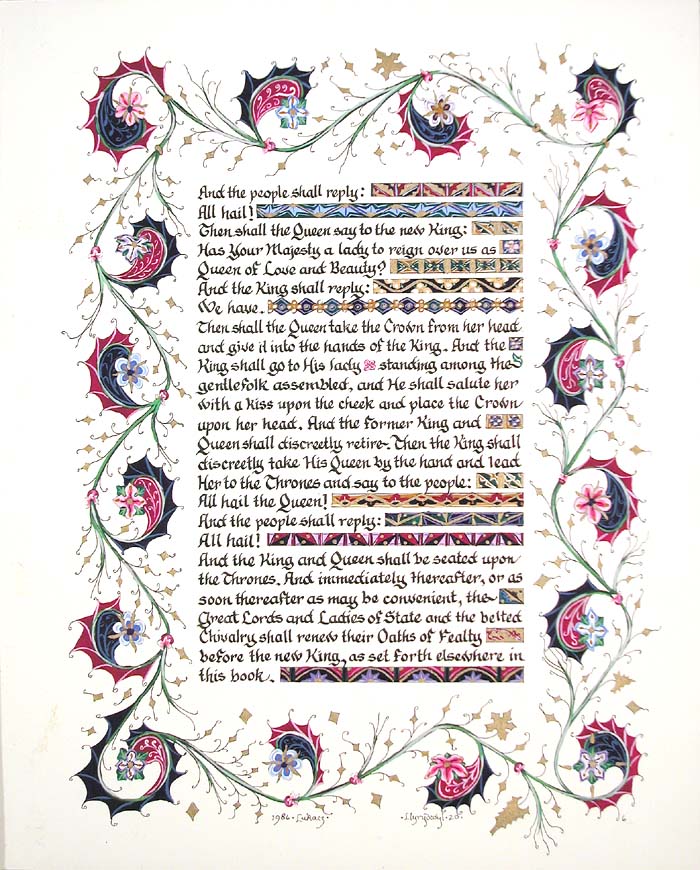 And the people shall reply:
All hail!
Then shall the Queen say to the new King:
Has Your Majesty a lady to reign over us as
Queen of Love and Beauty?
And the King shall reply:
We have.
Then shall the Queen take the Crown from her head
and give it into the hands of the King. And the
King shall go to His lady standing among the
gentlefolk assembled, and He shall salute her
with a kiss upon the cheek and place the Crown
upon her head. And the former King and
Queen shall discreetly retire. Then the King shall
discreetly take His Queen by the hand and lead
Her to the Thrones and say to the people:
All hail the Queen!
And the people shall reply:
All hail!
And the King and Queen shall be seated upon
the Thrones. And immediately thereafter, or as
soon thereafter as may be convenient, the
Great Lords and Ladies of State and the belted
Chivalry shall renew their Oaths of Fealty
before the new King, as set forth elsewhere in
this book.
1986 · Lukacs ·